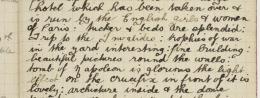 hotel which has been taken over &
is run by the English girls & women
of Paris: tucker & beds are splendid:
Trip to the Invalides: trophies of war
in the yard interesting: fine building:
beautiful pictures round the walls:
tomb of Napoleon is glorious the light
effect on the crucifix in front of it is
lovely: architure inside & the dome